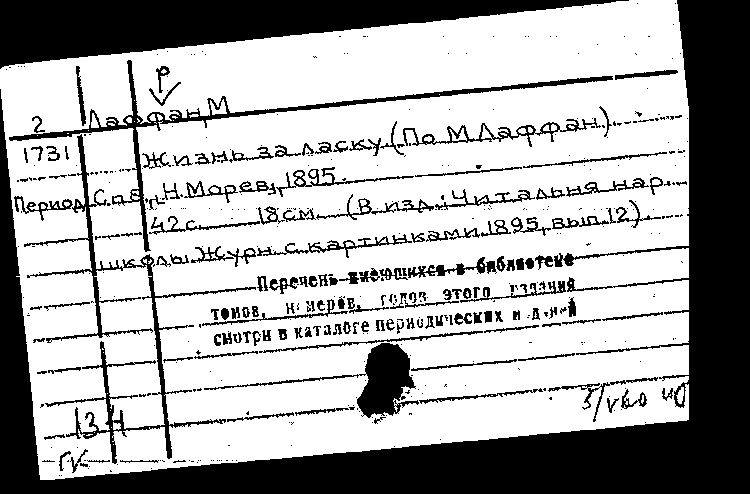 р
2 Лаффан, М
1731 Жизнь за ласку (По М Лаффан).
Период С.п б., Н. Морев, 1895.
42 с. 18 см. (В изд.: Читальня нар.
школы. Журн. с картинками. 1895, вып. 12).
Перечень имеющихся в библиотеке
томов, номеров, годов этого издания
смотри в каталоге периодических изданий
134
ГК